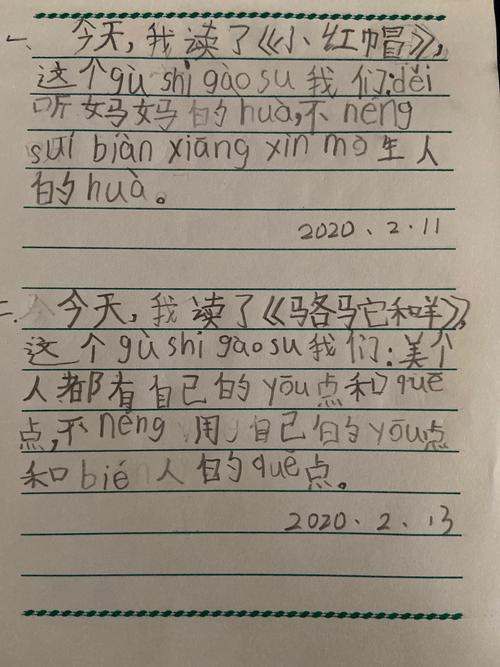 一、今天,我读了《小红帽》,
这个gù shi gào su 我们:děi
听妈妈的huà,不néng
suí biàn xiāng xìn mò生人
的huà。
2020、2.11
二、今天,我读了《骆马它和羊》,
这个gù shi gào su我们:美个
人都有自己的yōu点和quē
点,不néng用自己的yōu点
和bié人的quē点。
2020、2、13